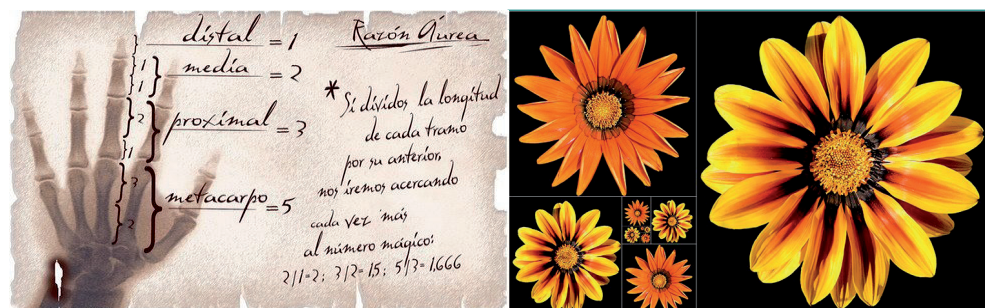 distal = 1
Razón Áurea
media = 2
proximal = 3
metacarpo = 5
1
1
2
1
3
2
* Si divides la longitud
de cada tramo
por su anterior,
nos iremos acercando
cada vez más
al número mágico:
2/1=2; 3/2=1,5; 5/3=1,666